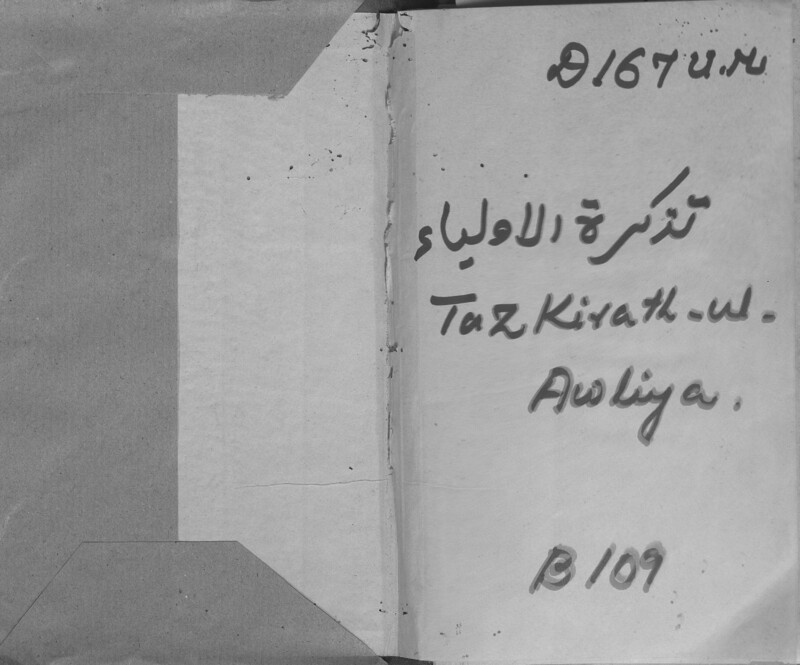 D.167 U.M
تذكرة الاولياء
Tazkirath-ul-
Awliya.
B 109